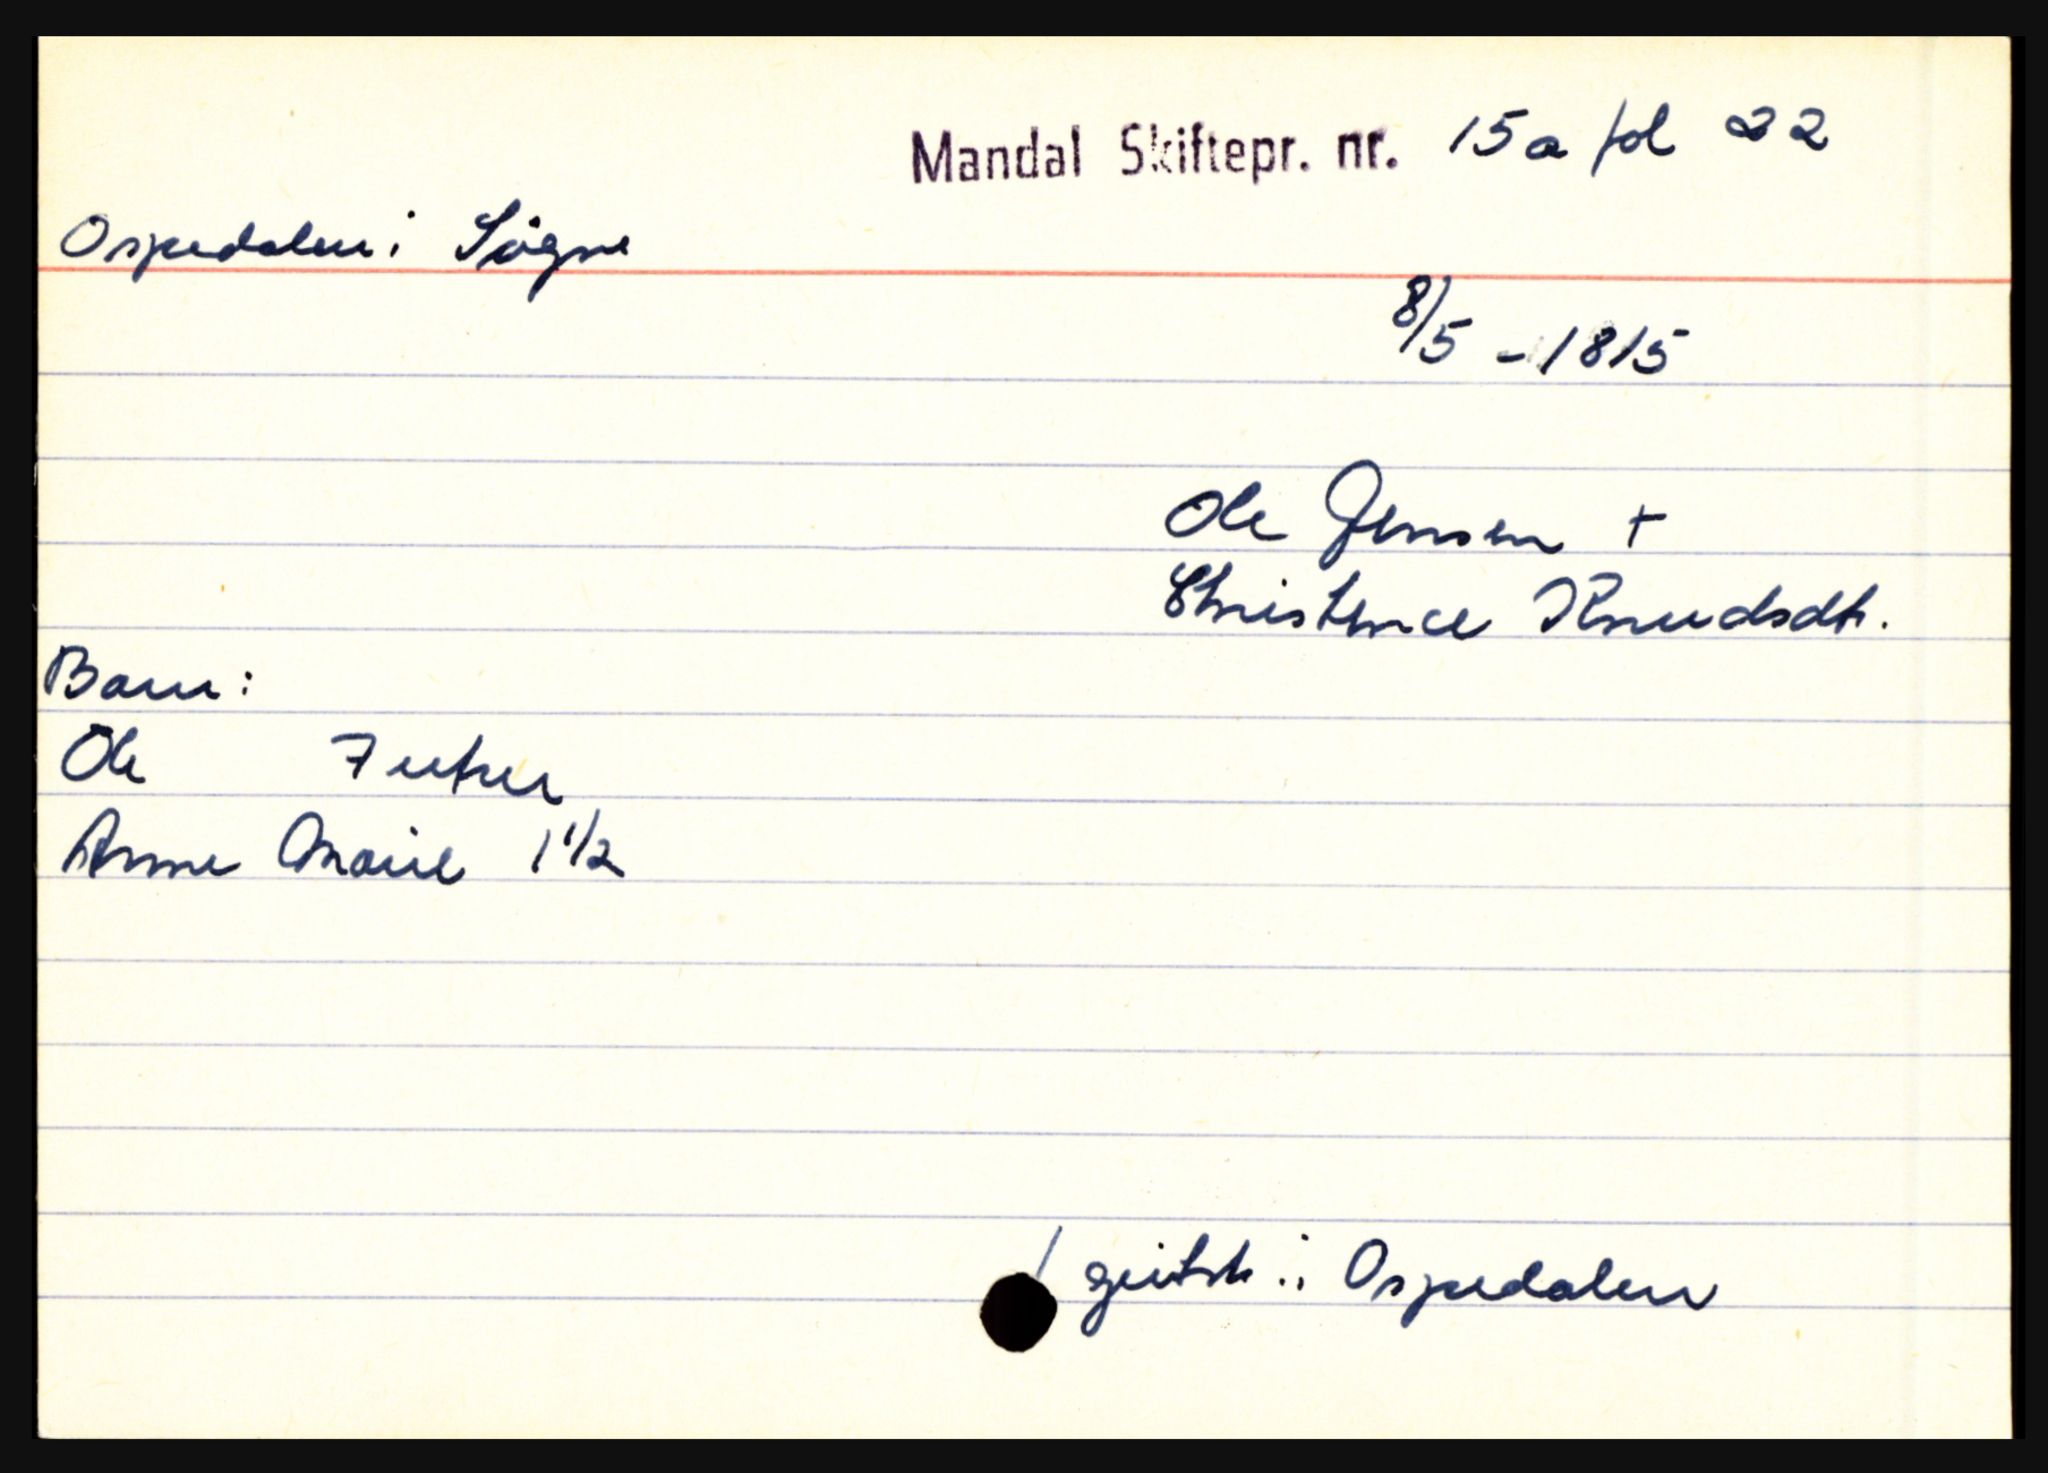 Mandal Skiftepr. nr. 15a fol 22
Ospedalen i Søgne
8/5 - 1815
Ole Jensen +
Christence Knudsdtr.
Barn:
Ole 7 uker
Anne Marie 1 1/2
/ givtsk. i Ospedalen